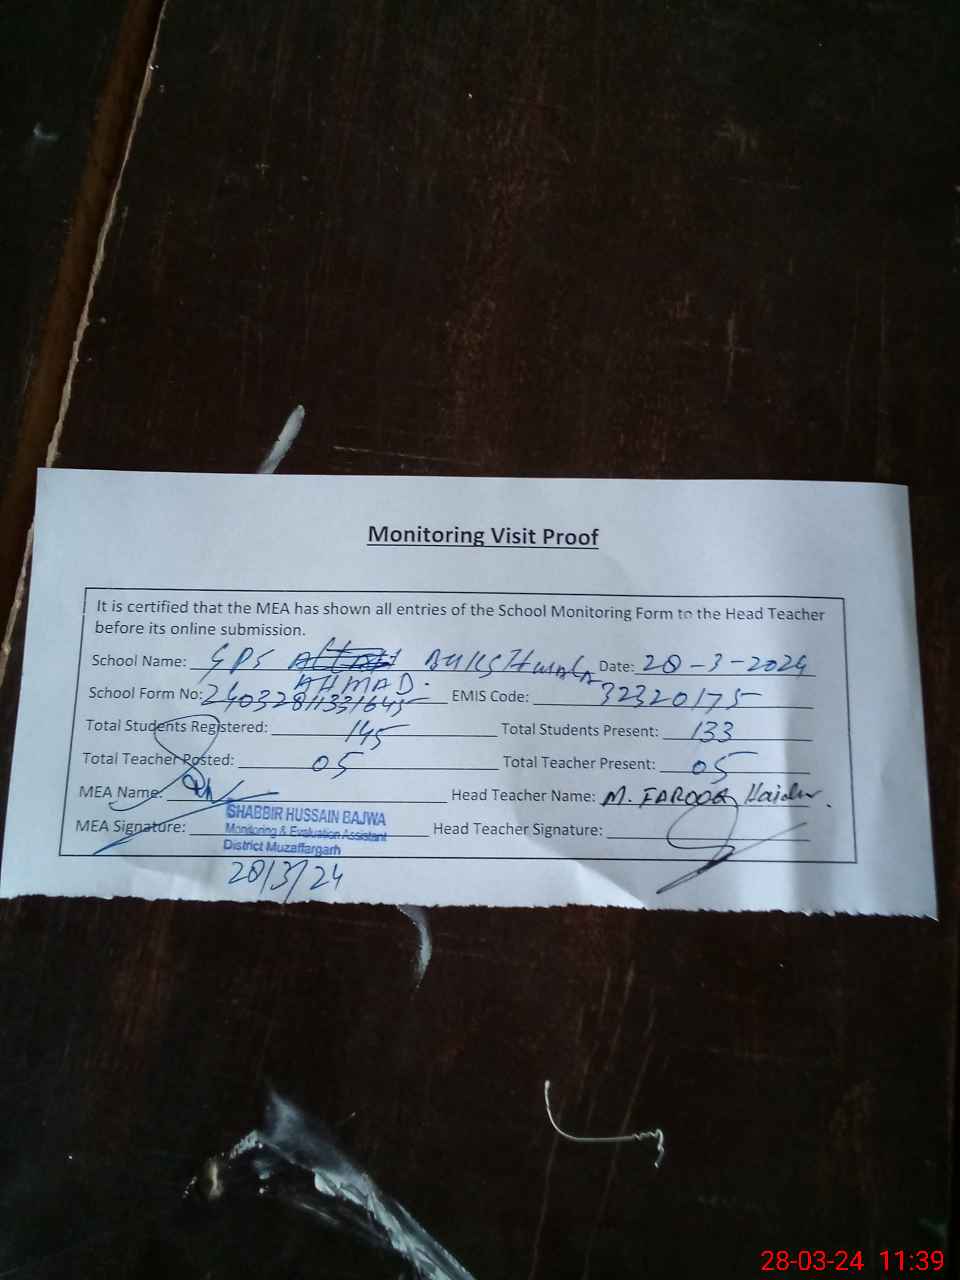 Monitoring Visit Proof
It is certified that the MEA has shown all entries of the School Monitoring Form to the Head Teacher
before its online submission.
School Name: GPS Date: 28-3-2024
AHMAD.
School Form No: EMIS Code: 32320175
Total Students Registered: 145 Total Students Present: 133
Total Teacher Posted: 05 Total Teacher Present: 05
MEA Name: Head Teacher Name: M. FAROOQ Haider.
SHABBIR HUSSAIN BAJWA
MEA Signature: Monitoring & Evaluation Assistant Head Teacher Signature:
District Muzaffargarh
28/3/24
28-03-24 11:39